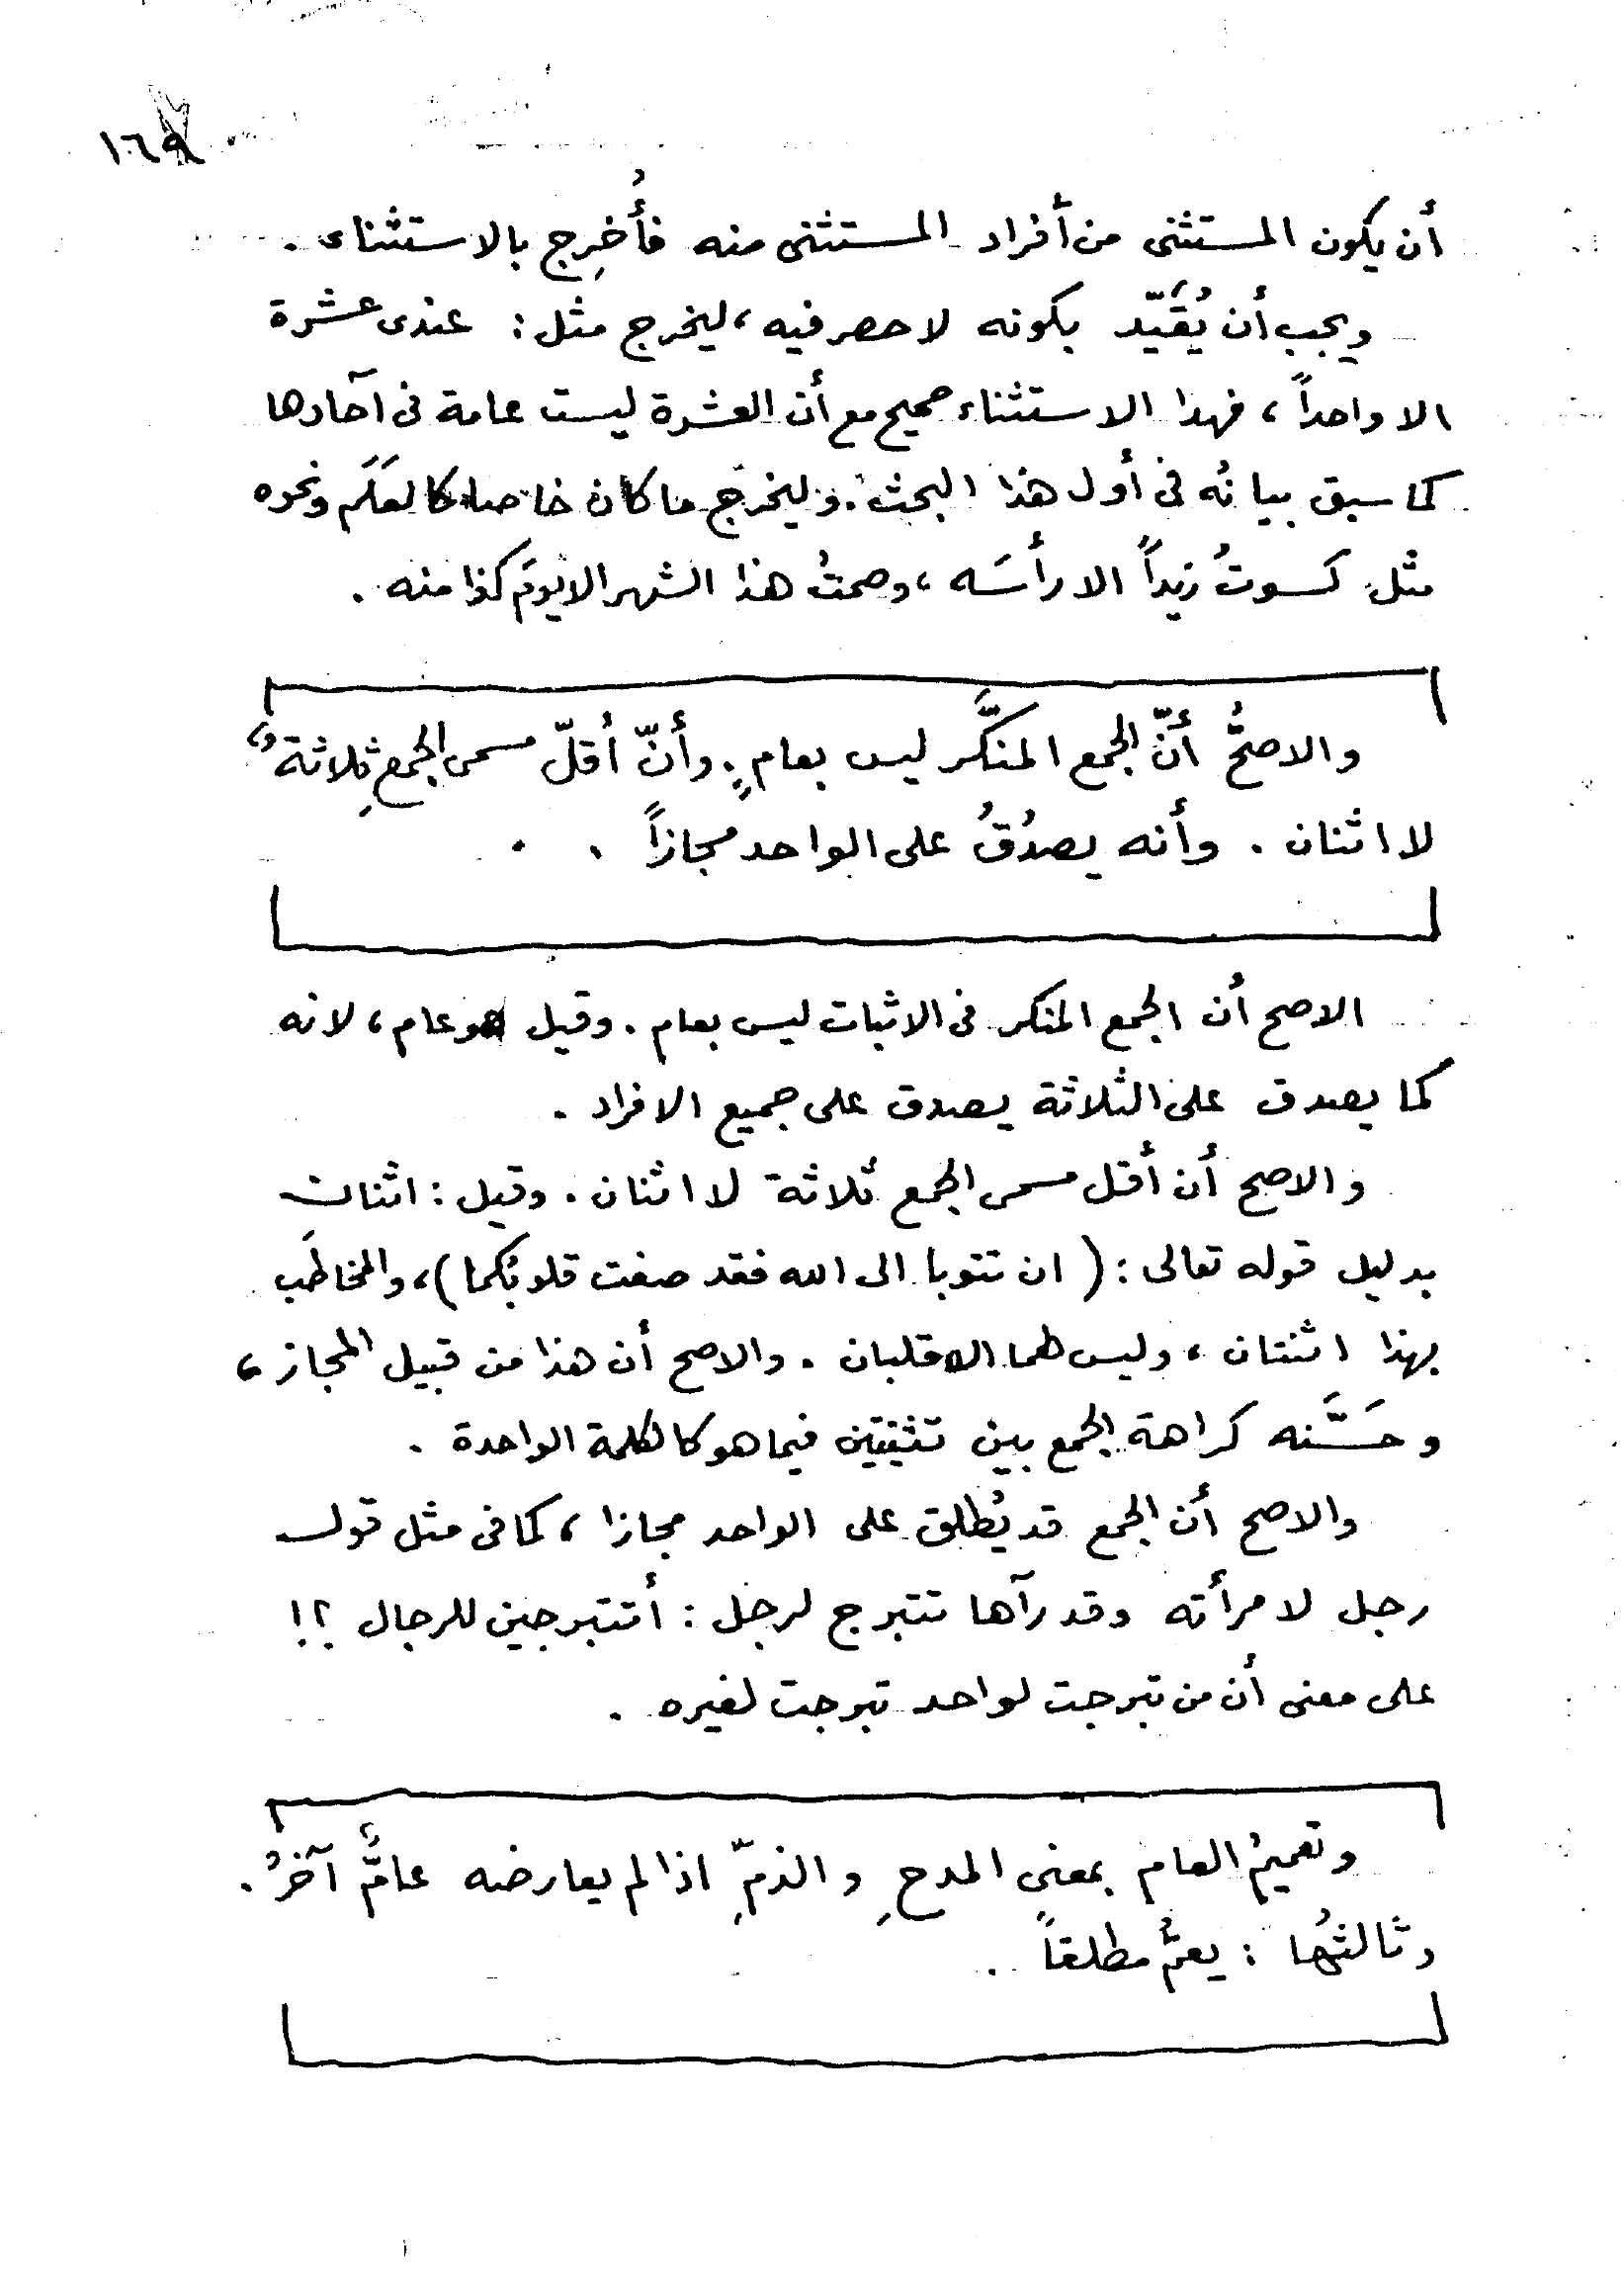 ١٦٩
أن يكون المستثنى من أفراد المستثنى منه فأُخرِج بالاستثناء .
ويجب أن يُقَيّد بكونه لا حصر فيه ، ليخرج مثل : عندى عشرة
الا واحداً ، فهذا الاستثناء صحيح مع أن العشرة ليست عامة فى آحادها
كما سبق بيانُه فى أول هذا البحث . وليخرج ما كان خاصا كالعَلَم ونحوه
مثل كسوتُ زيداً الا رأسَه ، وصمتُ هذا الشهر الا يومَ كذا منه .
والاصحُّ أنّ الجمع المنكَّر ليس بعامٍ . وأنّ أقلّ مسمى الجمعِ ثلاثةٌ
لا اثنان . وأنه يصدُقُ على الواحد مجازاً .
الاصح أن الجمع المنكر فى الاثبات ليس بعام . وقيل هو عام ، لانه
كما يصدق على الثلاثة يصدق على جميع الافراد .
والاصح أن أقل مسمى الجمع ثلاثة لا اثنان . وقيل : اثنان
بدليل قوله تعالى : ( ان تتوبا الى الله فقد صغت قلوبكما ) ، والمخاطَب
بهذا اثنتان ، وليس لهما الا قلبان . والاصح أن هذا من قبيل المجاز ،
وحَسَّنه كراهة الجمع بين تثنيتين فيما هو كالكلمة الواحدة .
والاصح أن الجمع قد يُطلق على الواحد مجازا ، كما فى مثل قول
رجل لامرأته وقد رآها تتبرج لرجل : أتتبرجين للرجال ؟!
على معنى أن من تبرجت لواحد تبرجت لغيره .
وتعميمُ العام بمعنى المدحِ والذمِّ اذا لم يعارضه عامٌّ آخرُ .
وثالثُها : يعمُّ مطلقاً .